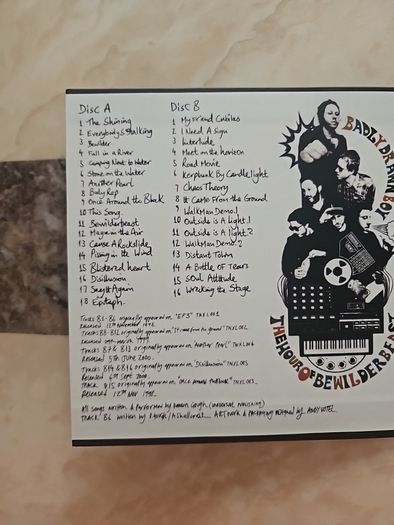 Disc A
1 The Shining
2 Everybody's Stalking
3 Bewilder
4 Fall in a River
5 Camping Next to Water
6 Stone on the Water
7 Another Pearl
8 Body Rap
9 Once Around the Block
10 This Song.
11 Bewilderbeast
12 Magic in the Air
13 Cause A Rockslide
14 Pissing in the Wind
15 Blistered heart
16 Disillusion
17 Say It Again
18 Epitaph.
Disc B
1 My Friend Cubilas
2 I Need A Sign
3 Interlude
4 Meet on the horizon
5 Road Movie
6 Kerplunk By Candlelight
7 Chaos Theory
8 It Came From the Ground
9 Walkman Demo.1
10 Outside is A Light.1
11 Outside is A light.2
12 Walkman Demo.2
13 Distant Town
14 A Bottle of Tears
15 Soul Attitude
16 Wrecking the Stage
Tracks originally appeared on "EP3"
Released November
Tracks originally appeared on "It came from the ground"
Released
Tracks B7 & B13 originally appeared on "Another Pearl"
Released 5th June 2000.
Tracks B14 & B16 originally appeared on "Disillusion"
Released Sept 2000
Track B15 originally appeared on "Once Around the Block"
Released 12th Nov
All songs written & performed by Damon Gough. (Universal Publishing)
Track B6 written by Artwork & packaging designed by Andy Votel
BADLY DRAWN BOY
THE HOUR OF BEWILDERBEAST